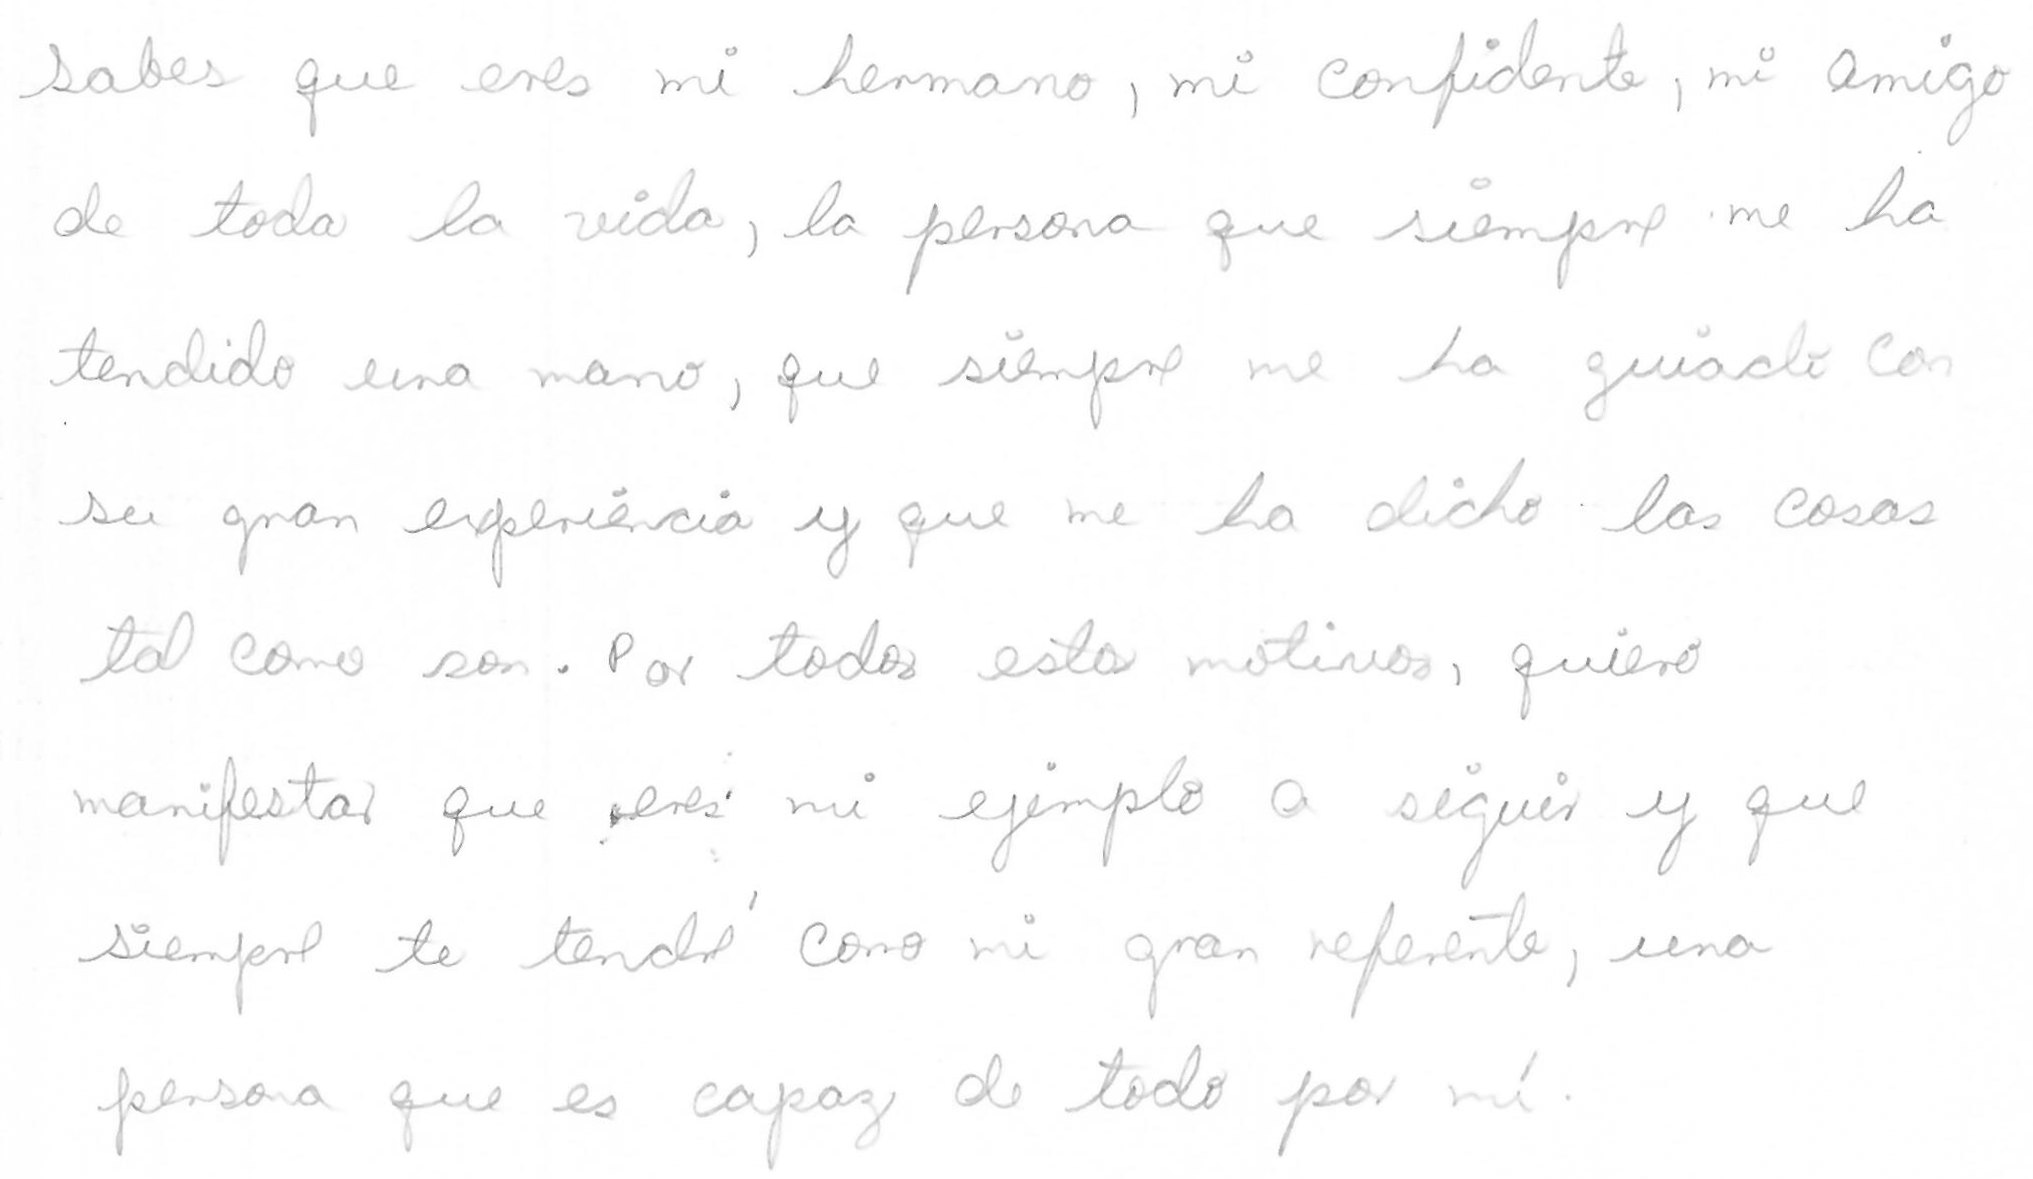 sabes que eres mi hermano, mi confidente, mi amigo
de toda la vida, la persona que siempre me ha
tendido una mano, que siempre me ha guiado con
su gran experiencia y que me ha dicho las cosas
tal como son. Por todos estos motivos, quiero
manifestar que eres mi ejemplo a seguir y que
siempre te tendré como mi gran referente, una
persona que es capaz de todo por mí.